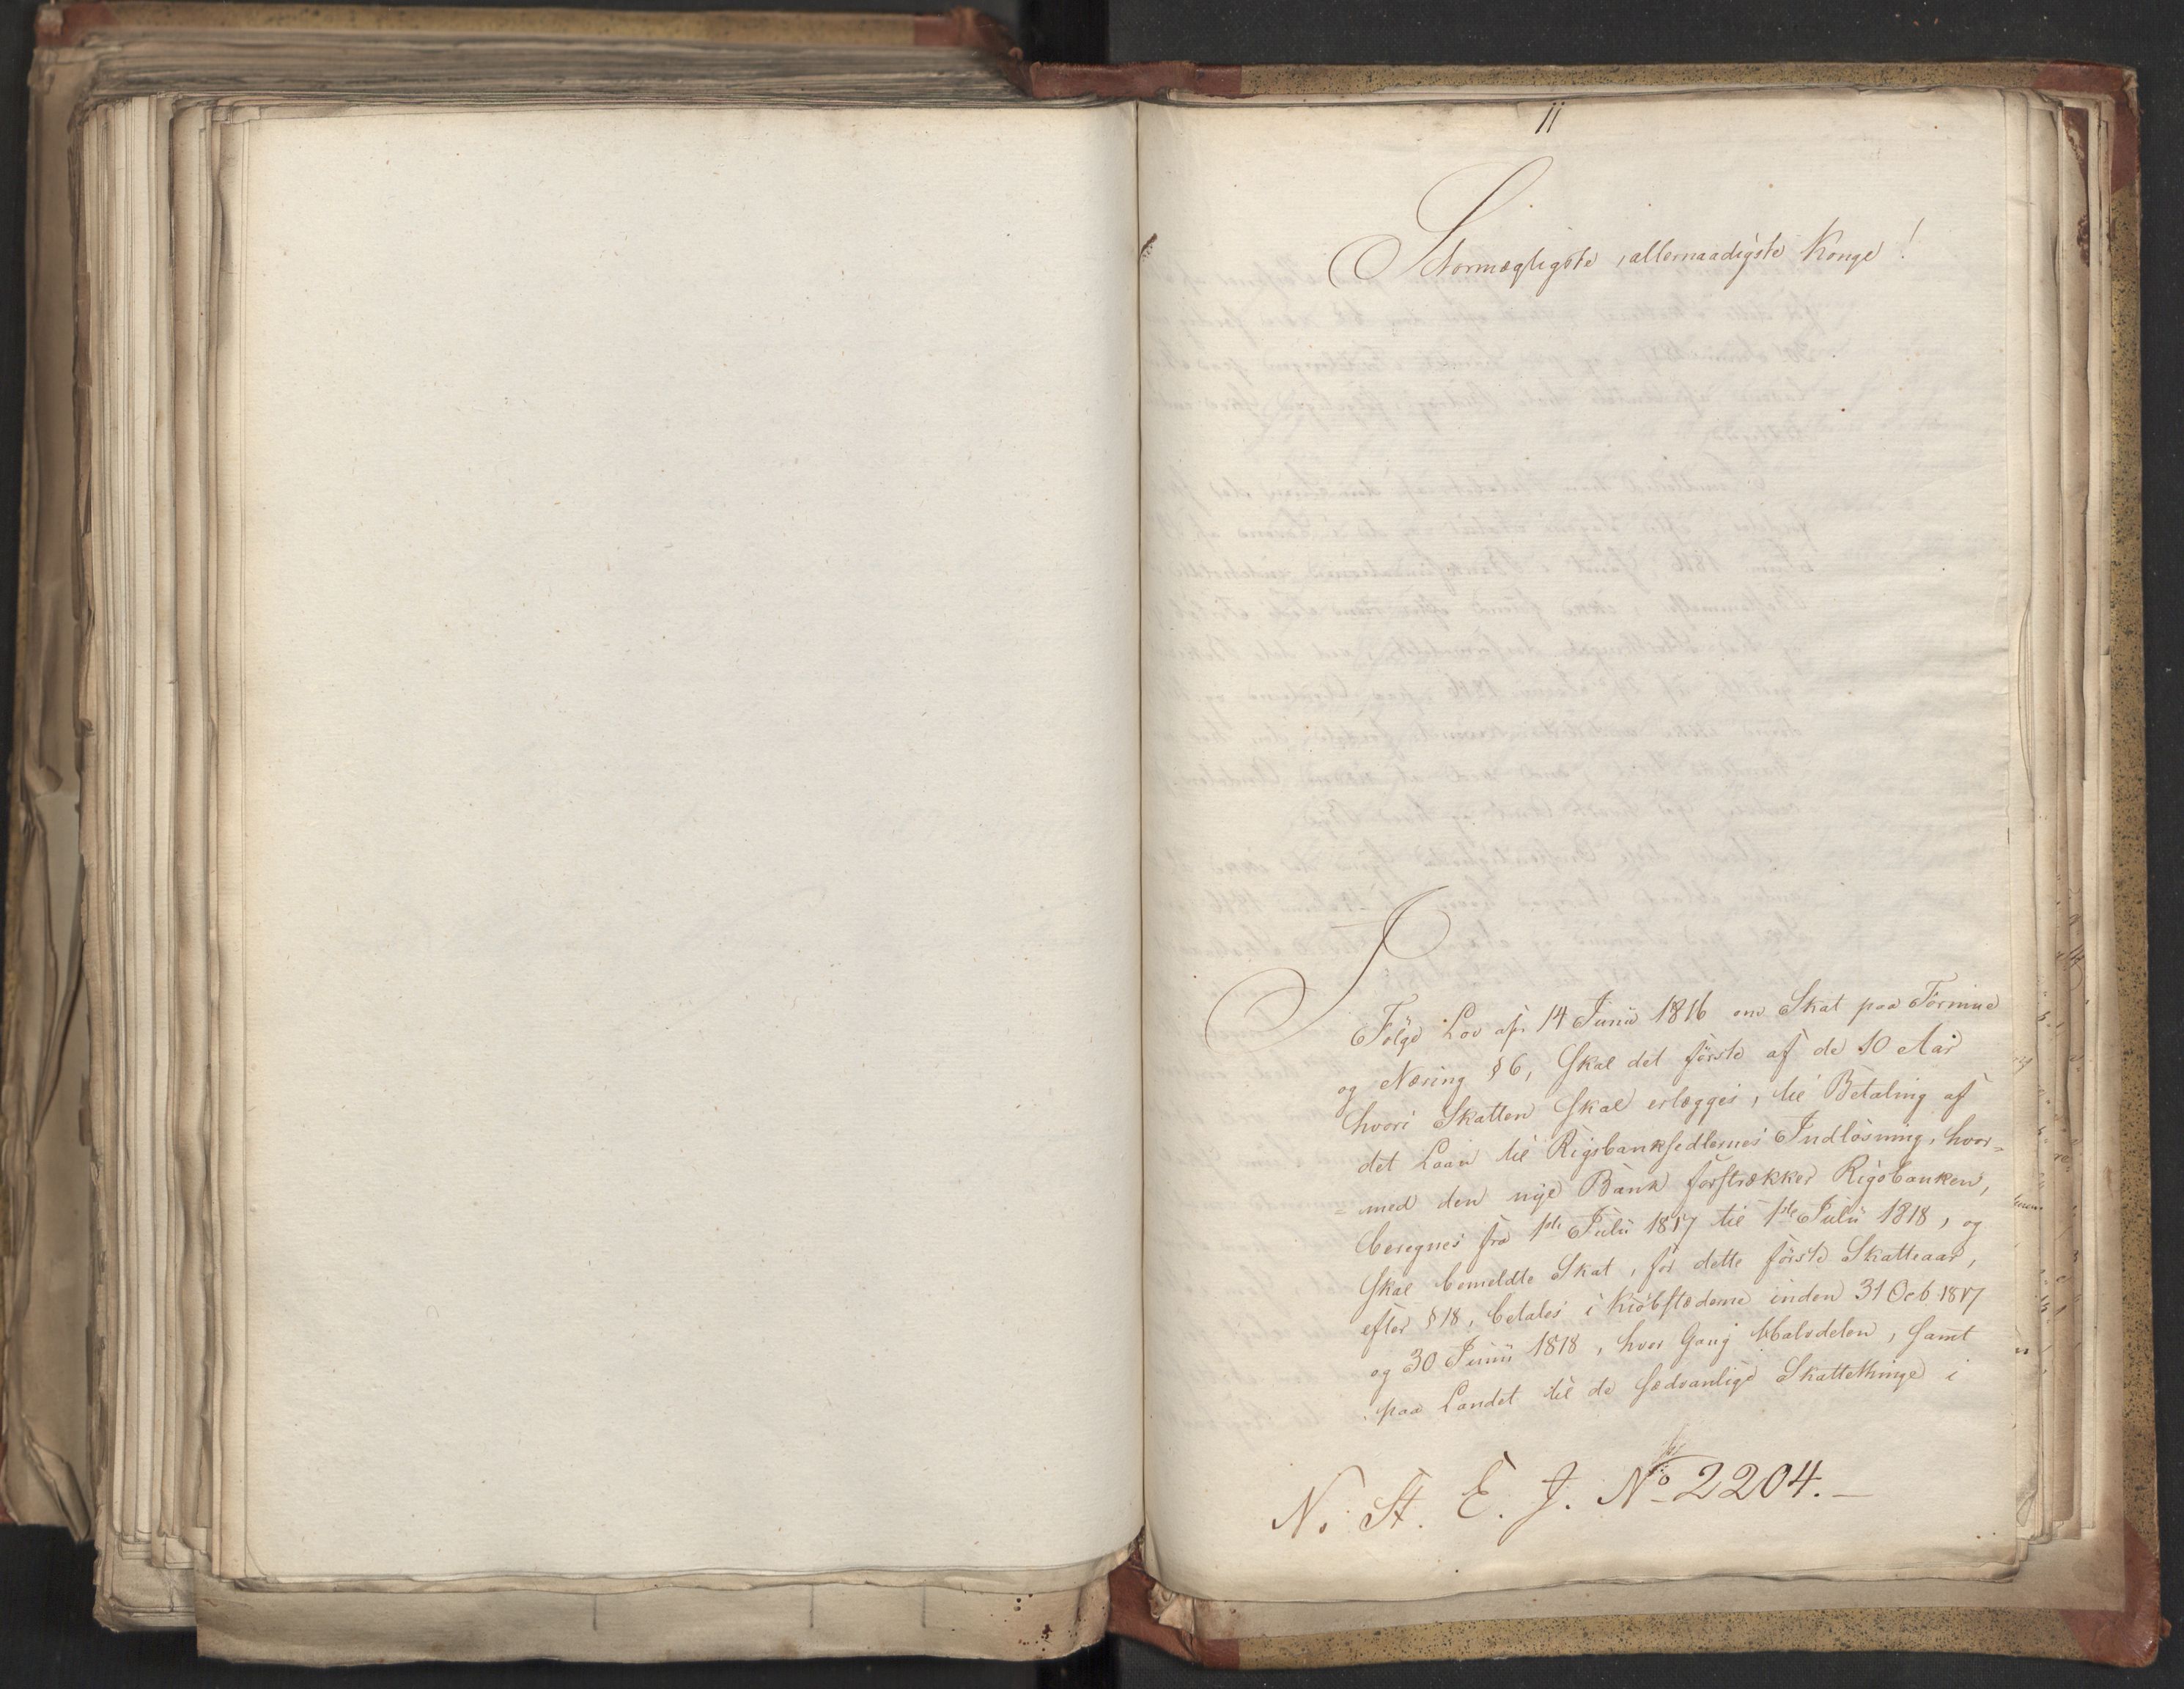 11
Stormægtigste, allernaadigste Konge!
I
Følge Lov af 14 Junii 1816 om Skat paa Formue
og Næring § 6, skal det første af de 10 Aar
hvori Skatten skal erlægges, til Betaling af
det Laan til Rigsbanksedlernes Indløsning, hvor-
- med den nye Bank forstrækker Rigsbanken,
beregnes fra 1ste Julii 1817 til 1ste Julii 1818, og
skal bemeldte Skat, for dette første Skatteaar,
efter § 18, betales i Kiøbstæderne inden 31 Oct. 1817
og 30 Junii 1818, hver Gang Halvdelen, samt
paa Landet til de sædvanlige Skattethinge i
N. St. E. J. No 2204.-